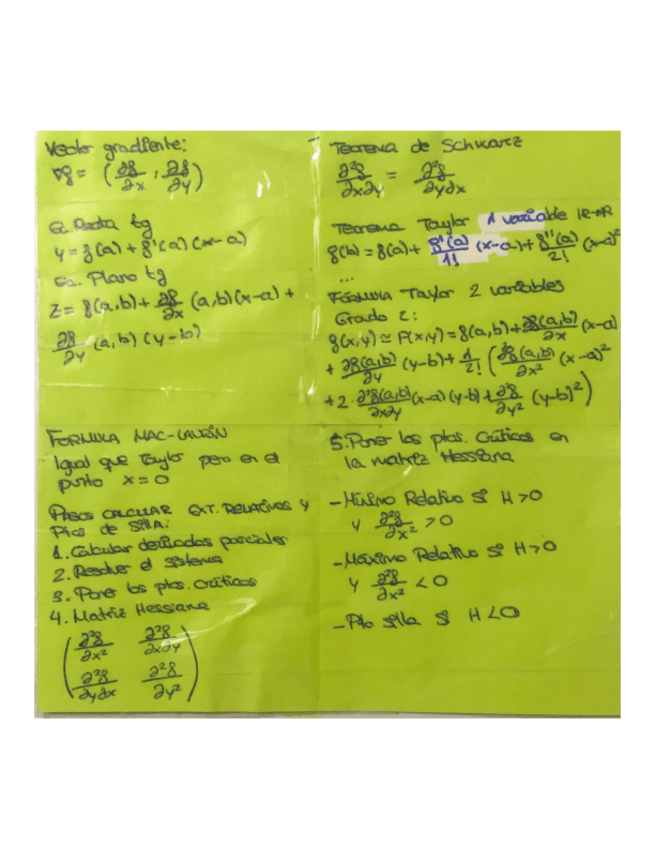 Vector gradiente:
∇f = (∂f/∂x, ∂f/∂y)
Ec. Recta tg
y = f(a) + f'(a) (x-a)
Ec. Plano tg
z = f(a,b) + ∂f/∂x (a,b)(x-a) +
∂f/∂y (a,b) (y-b)
Teorema de Schwarz
∂²f/∂x∂y = ∂²f/∂y∂x
Teorema Taylor 1 variable IR→IR
f(b) = f(a) + f'(a)/1! (x-a) + f''(a)/2! (x-a)²
...
FÓRMULA Taylor 2 variables
Grado 2:
f(x,y) ≃ P(x,y) = f(a,b) + ∂f(a,b)/∂x (x-a)
+ ∂f(a,b)/∂y (y-b) + 1/2! (∂²f(a,b)/∂x² (x-a)²
+ 2·∂²f(a,b)/∂x∂y (x-a)(y-b) + ∂f/∂y² (y-b)²)
FORMULA MAC-LAURIN
igual que Taylor pero en el
punto x=0
PASOS CALCULAR EXT. RELATIVOS Y
Ptos de SILLA:
1. Calcular derivadas parciales
2. Resolver el sistema
3. Poner los ptos. Críticos
4. Matriz Hessiana
(∂²f/∂x² ∂²f/∂x∂y)
(∂²f/∂y∂x ∂²f/∂y²)
5. Poner los ptos. Críticos en
la matriz Hessiana
- Mínimo Relativo si H>0
y ∂²f/∂x² > 0
- Máximo Relativo si H>0
y ∂²f/∂x² < 0
- Pto silla si H<0